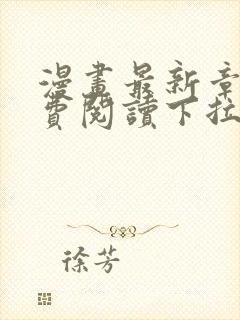 漫畫最新章
費閱讀下拉
徐芳